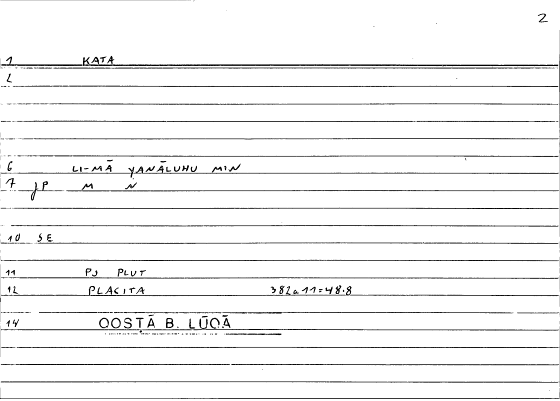 2
1 KATA
2
6 LI-MĀ YANĀLUHU MIN
7 JP M N
10 SE
11 PJ PLUT
12 PLACITA 382a11=48.8
14 QOSṬĀ B. LŪQĀ